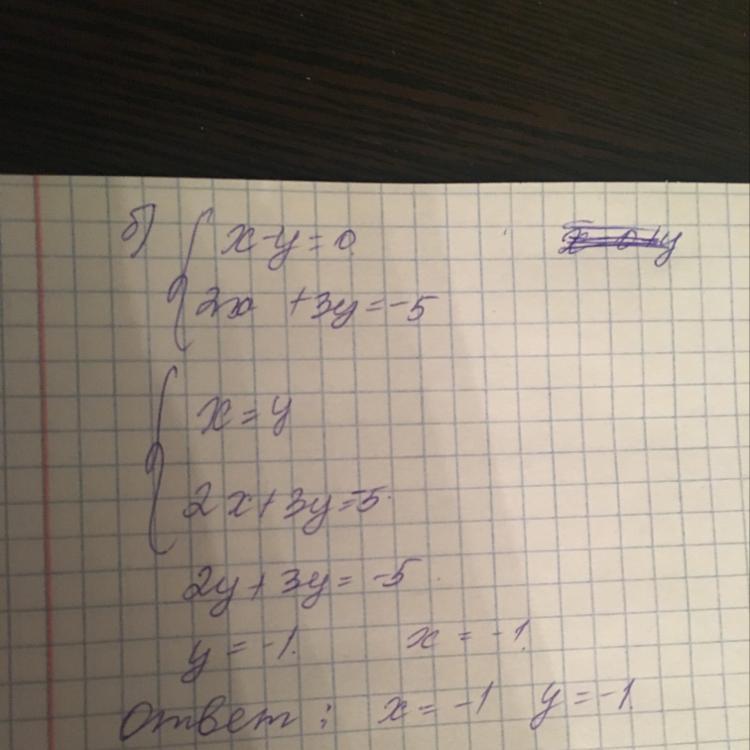 б) x-y=0
2x +3y=-5
x=y
2x+3y=-5
2y+3y=-5
y=-1. x=-1.
Ответ: x=-1 y=-1.